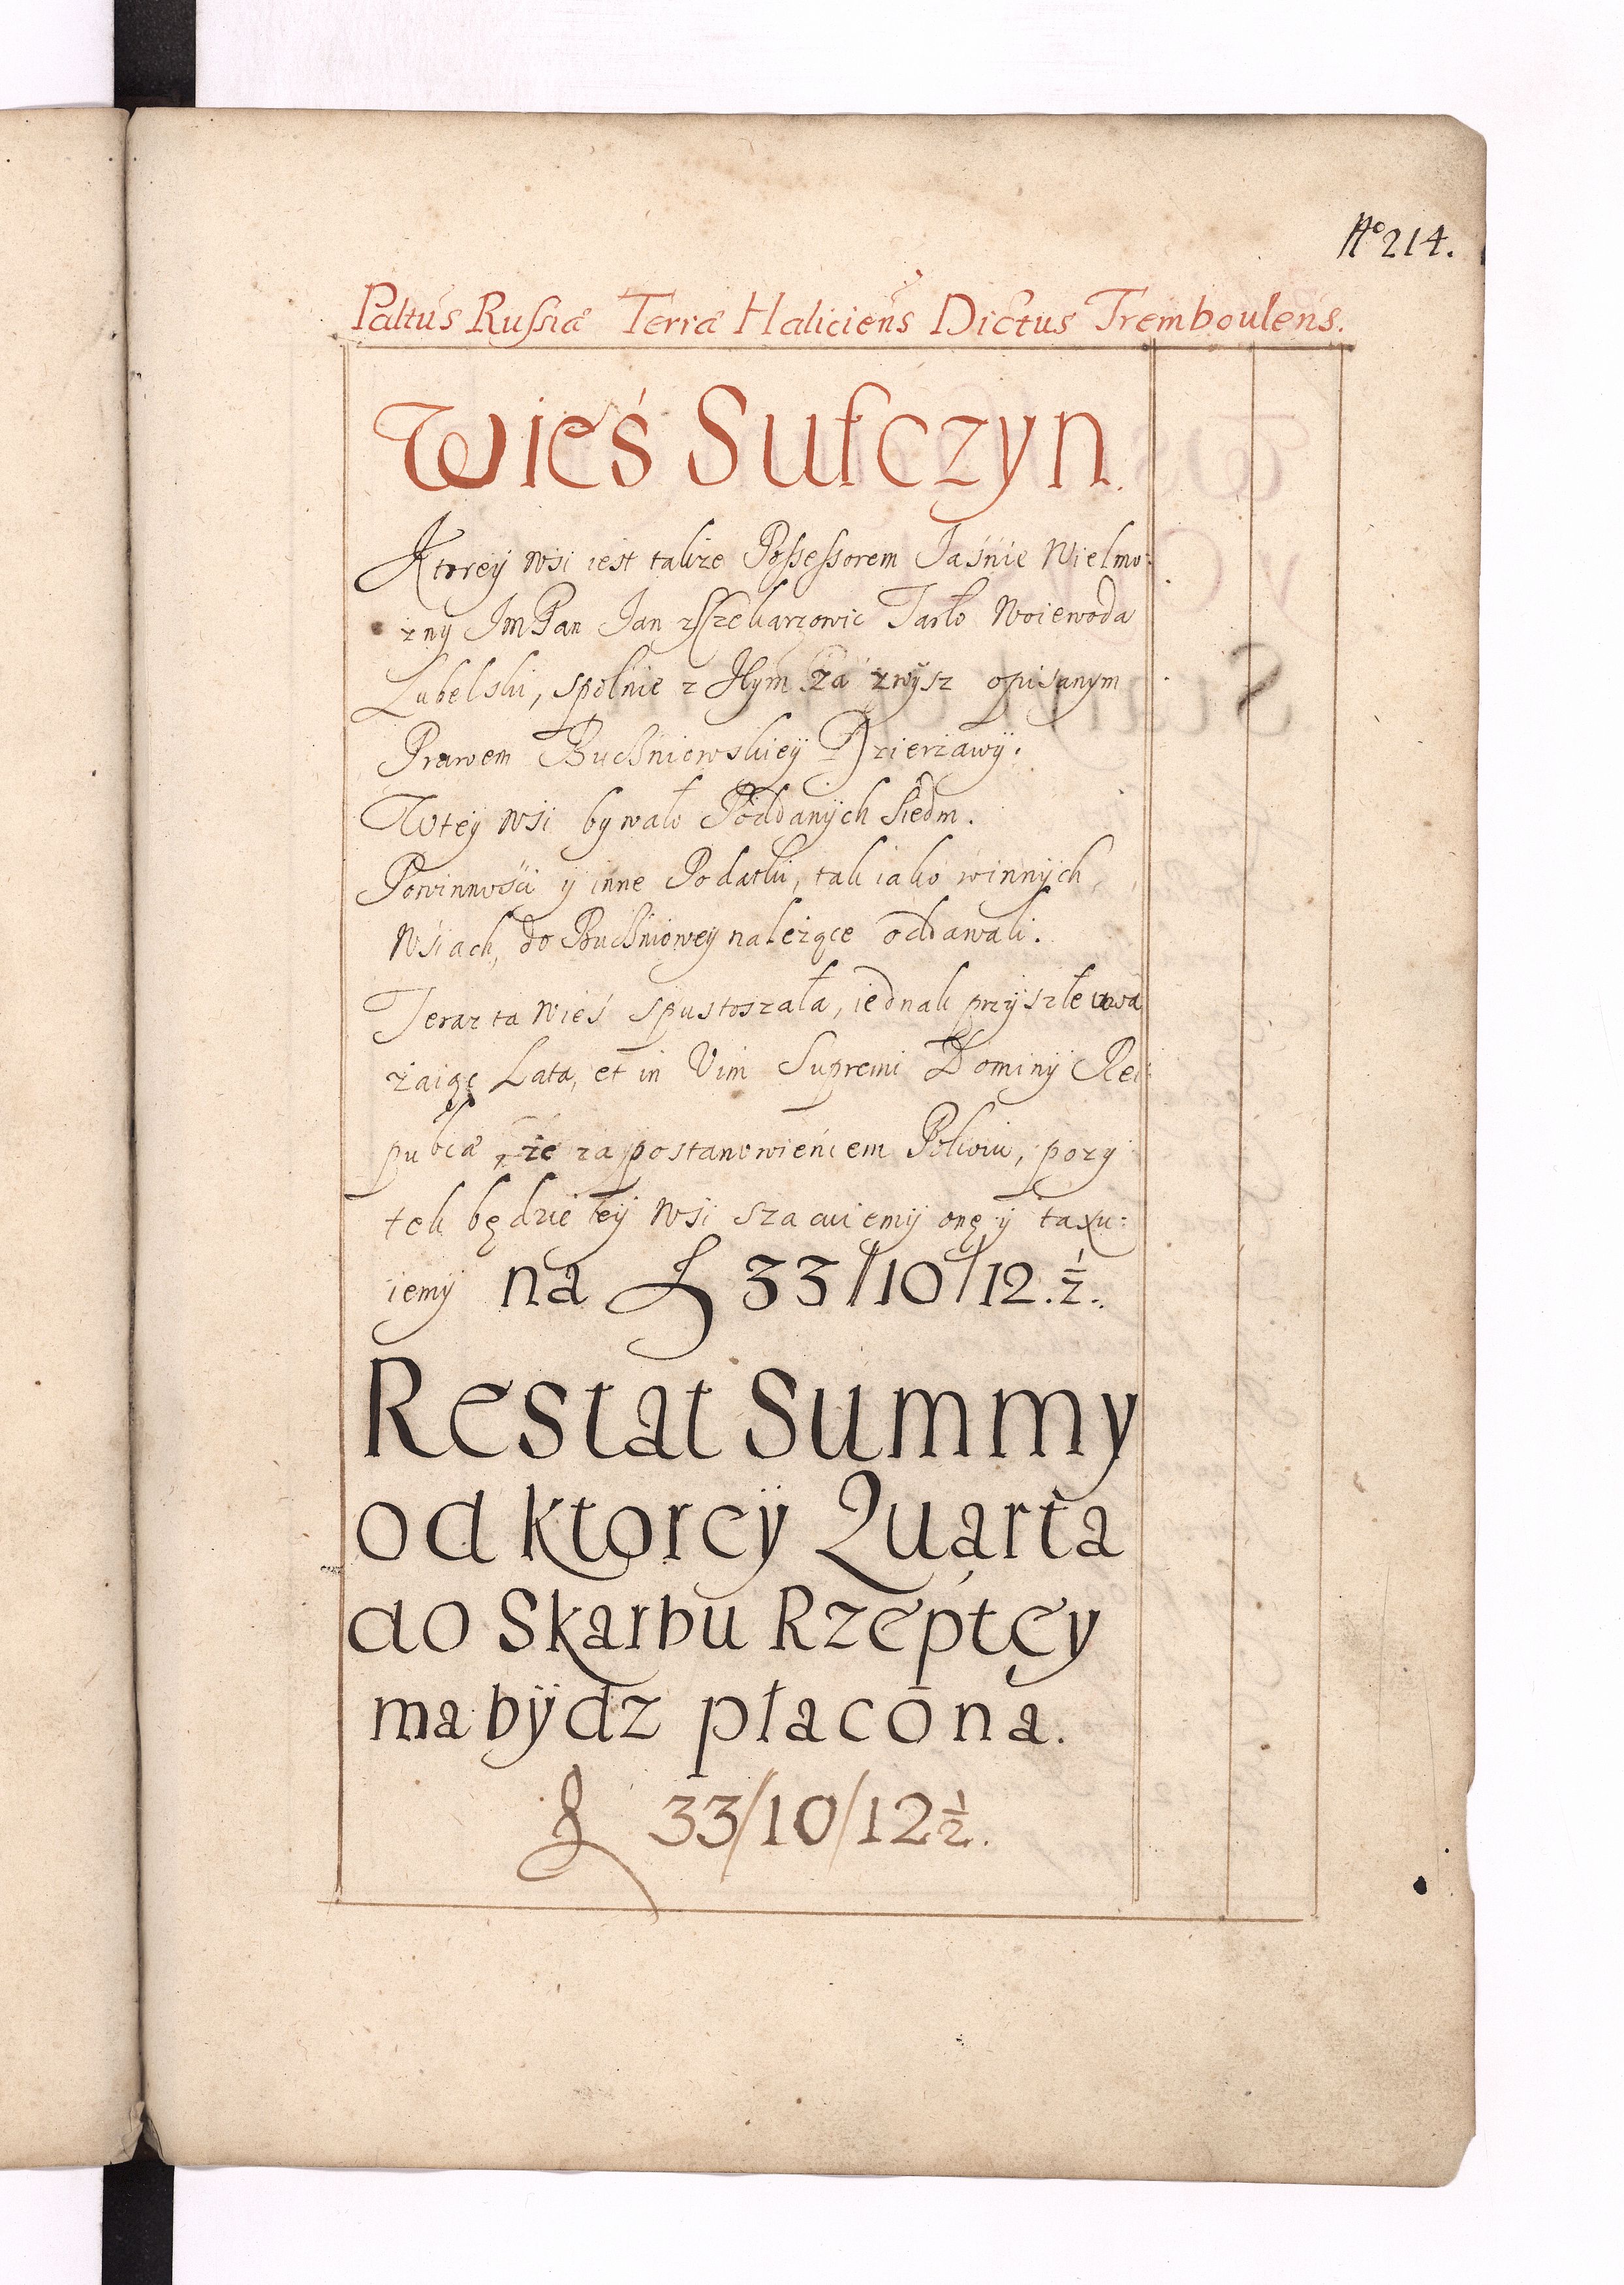 No 214.
Paltus Russiæ Terræ Haliciens Dictus Tremboulens.
Wieś Sufczyn.
Ktorey wsi iest takze Possessorem Jaśnie Wielmo:
zny JmPan Jan z Szczekarzowic Tarło Woiewoda
Lubelski, spolnie z Nym za zwysz opisanym
Prawem Bućniewskiey Dzierżawy.
Wtey wsi bywało Poddanych siedm.
Powinności y inne Podatki, tak iako winnych
Wsiach, do Bućniowey należące oddawali.
Teraz ta Wieś spustoszała, iednak przyszłe uwa
żaiąc Lata, et in Vim Supremi Dominij Rei:
pubcæ, że za postanowieniem Pokoiu, pozy
tek będzie tey wsi szacuiemy onę y taxu:
iemy na ƒ 33/10/12.½.
Restat Summy
od ktorey Quarta
do Skarbu Rzeptey
ma bydz płacona.
ƒ 33/10/12½.